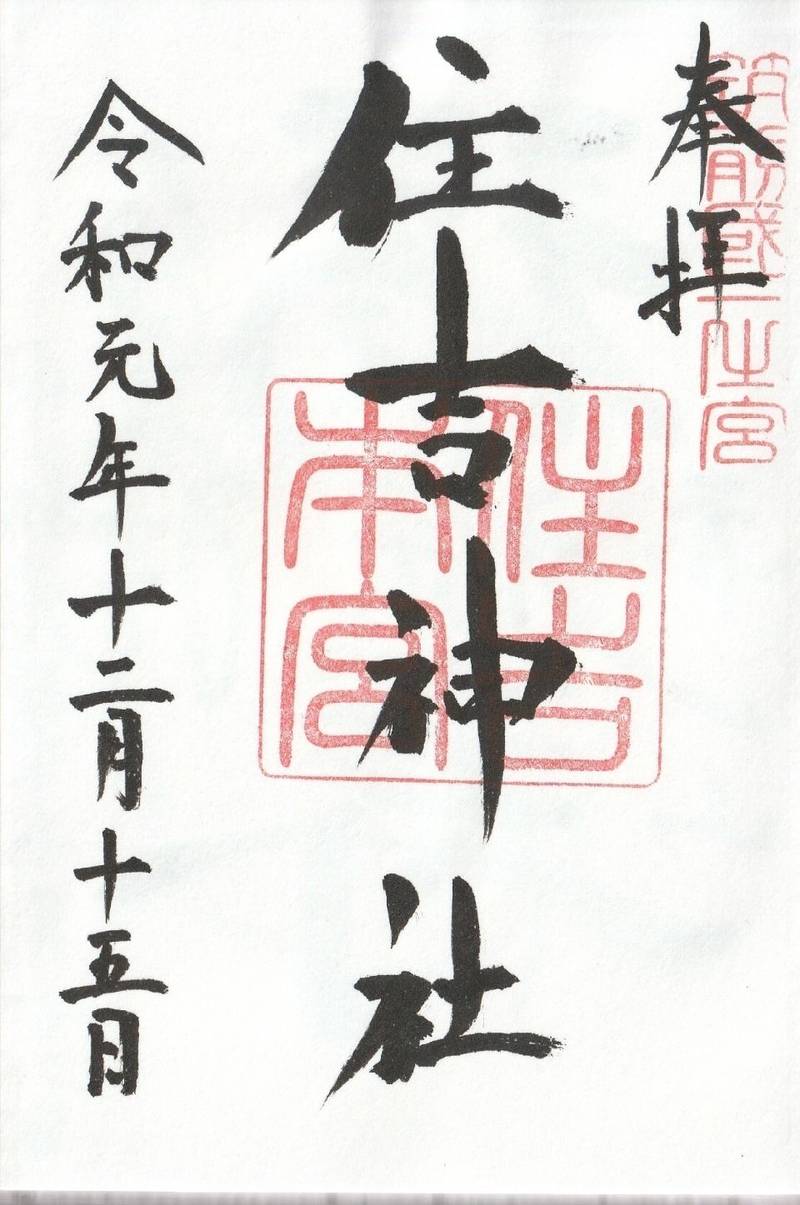 奉拝
筑前國一之宮
住吉神社
住吉本宮
令和元年十二月十五日